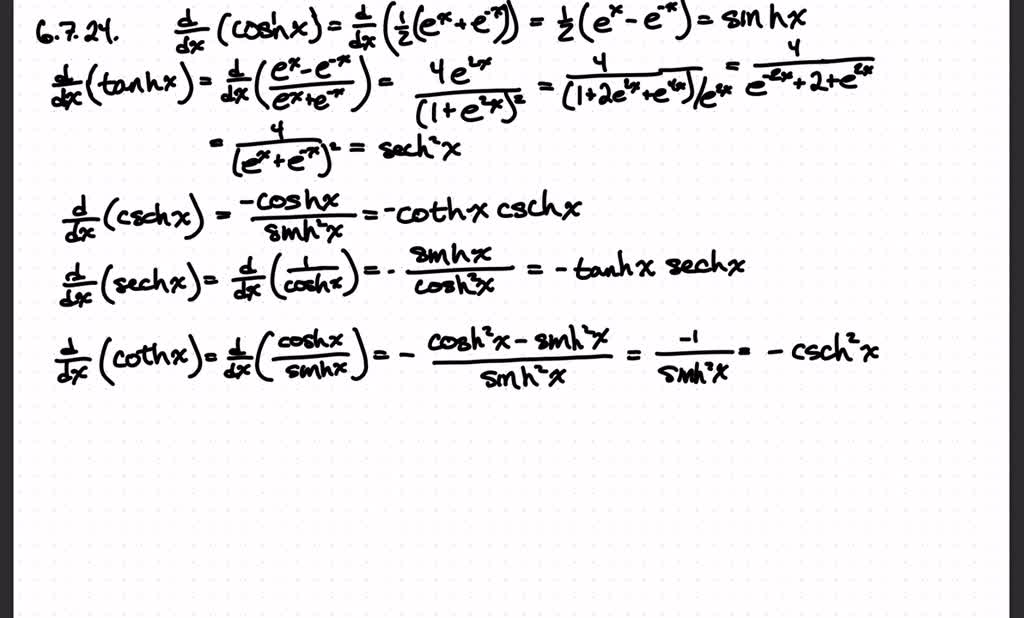 6.7.24. d/dx (cosh x) = d/dx (1/2 (e^x + e^-x)) = 1/2 (e^x - e^-x) = sinh x
d/dx (tanh x) = d/dx ((e^x - e^-x)/(e^x + e^-x)) = 4e^2x/(1 + e^2x)^2 = 4/((1 + 2e^2x + e^4x)/e^2x) = 4/(e^-2x + 2 + e^2x)
= 4/(e^x + e^-x)^2 = sech^2 x
d/dx (csch x) = -cosh x/sinh^2 x = -coth x csch x
d/dx (sech x) = d/dx (1/cosh x) = - sinh x/cosh^2 x = - tanh x sech x
d/dx (coth x) = d/dx (cosh x/sinh x) = - (cosh^2 x - sinh^2 x)/sinh^2 x = -1/sinh^2 x = - csch^2 x